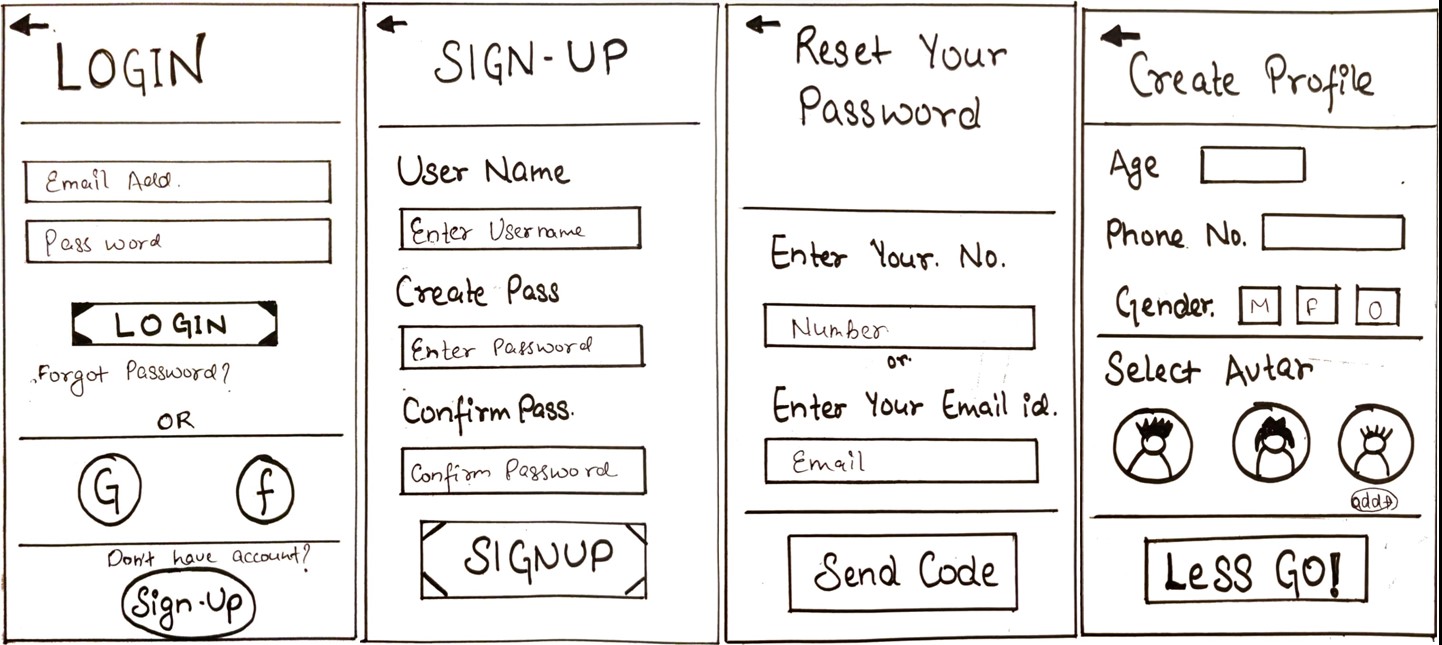 LOGIN
Email Add.
Password
LOGIN
Forgot Password?
OR
G f
Don't have account?
Sign-Up
SIGN-UP
User Name
Enter Username
Create Pass
Enter Password
Confirm Pass.
Confirm Password
SIGNUP
Reset Your
Password
Enter Your. No.
Number
or.
Enter Your Email id.
Email
Send Code
Create Profile
Age
Phone No.
Gender. M F O
Select Avtar
add+
LESS GO!